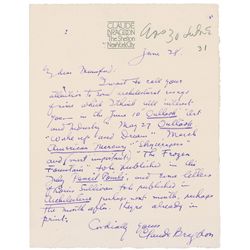 CLAUDE
BRAGDON
The Shelton
New York City
June 28
My dear Mumford:
I want to call your
attention to some architectural
which I think will interest
you — in the June 10 Outlook Art
and Industry" May 27 Outlook
"Wake up and Dream" March
American Mercury "Skyscrapers"
and (most important) "The Frozen
Fountain" to be published in the
July Pencil Points, and some letters
of Louis Sullivan to be published in
Architecture perhaps next month, perhaps
the month after. They're already in
print.
Cordially yours
Claude Bragdon